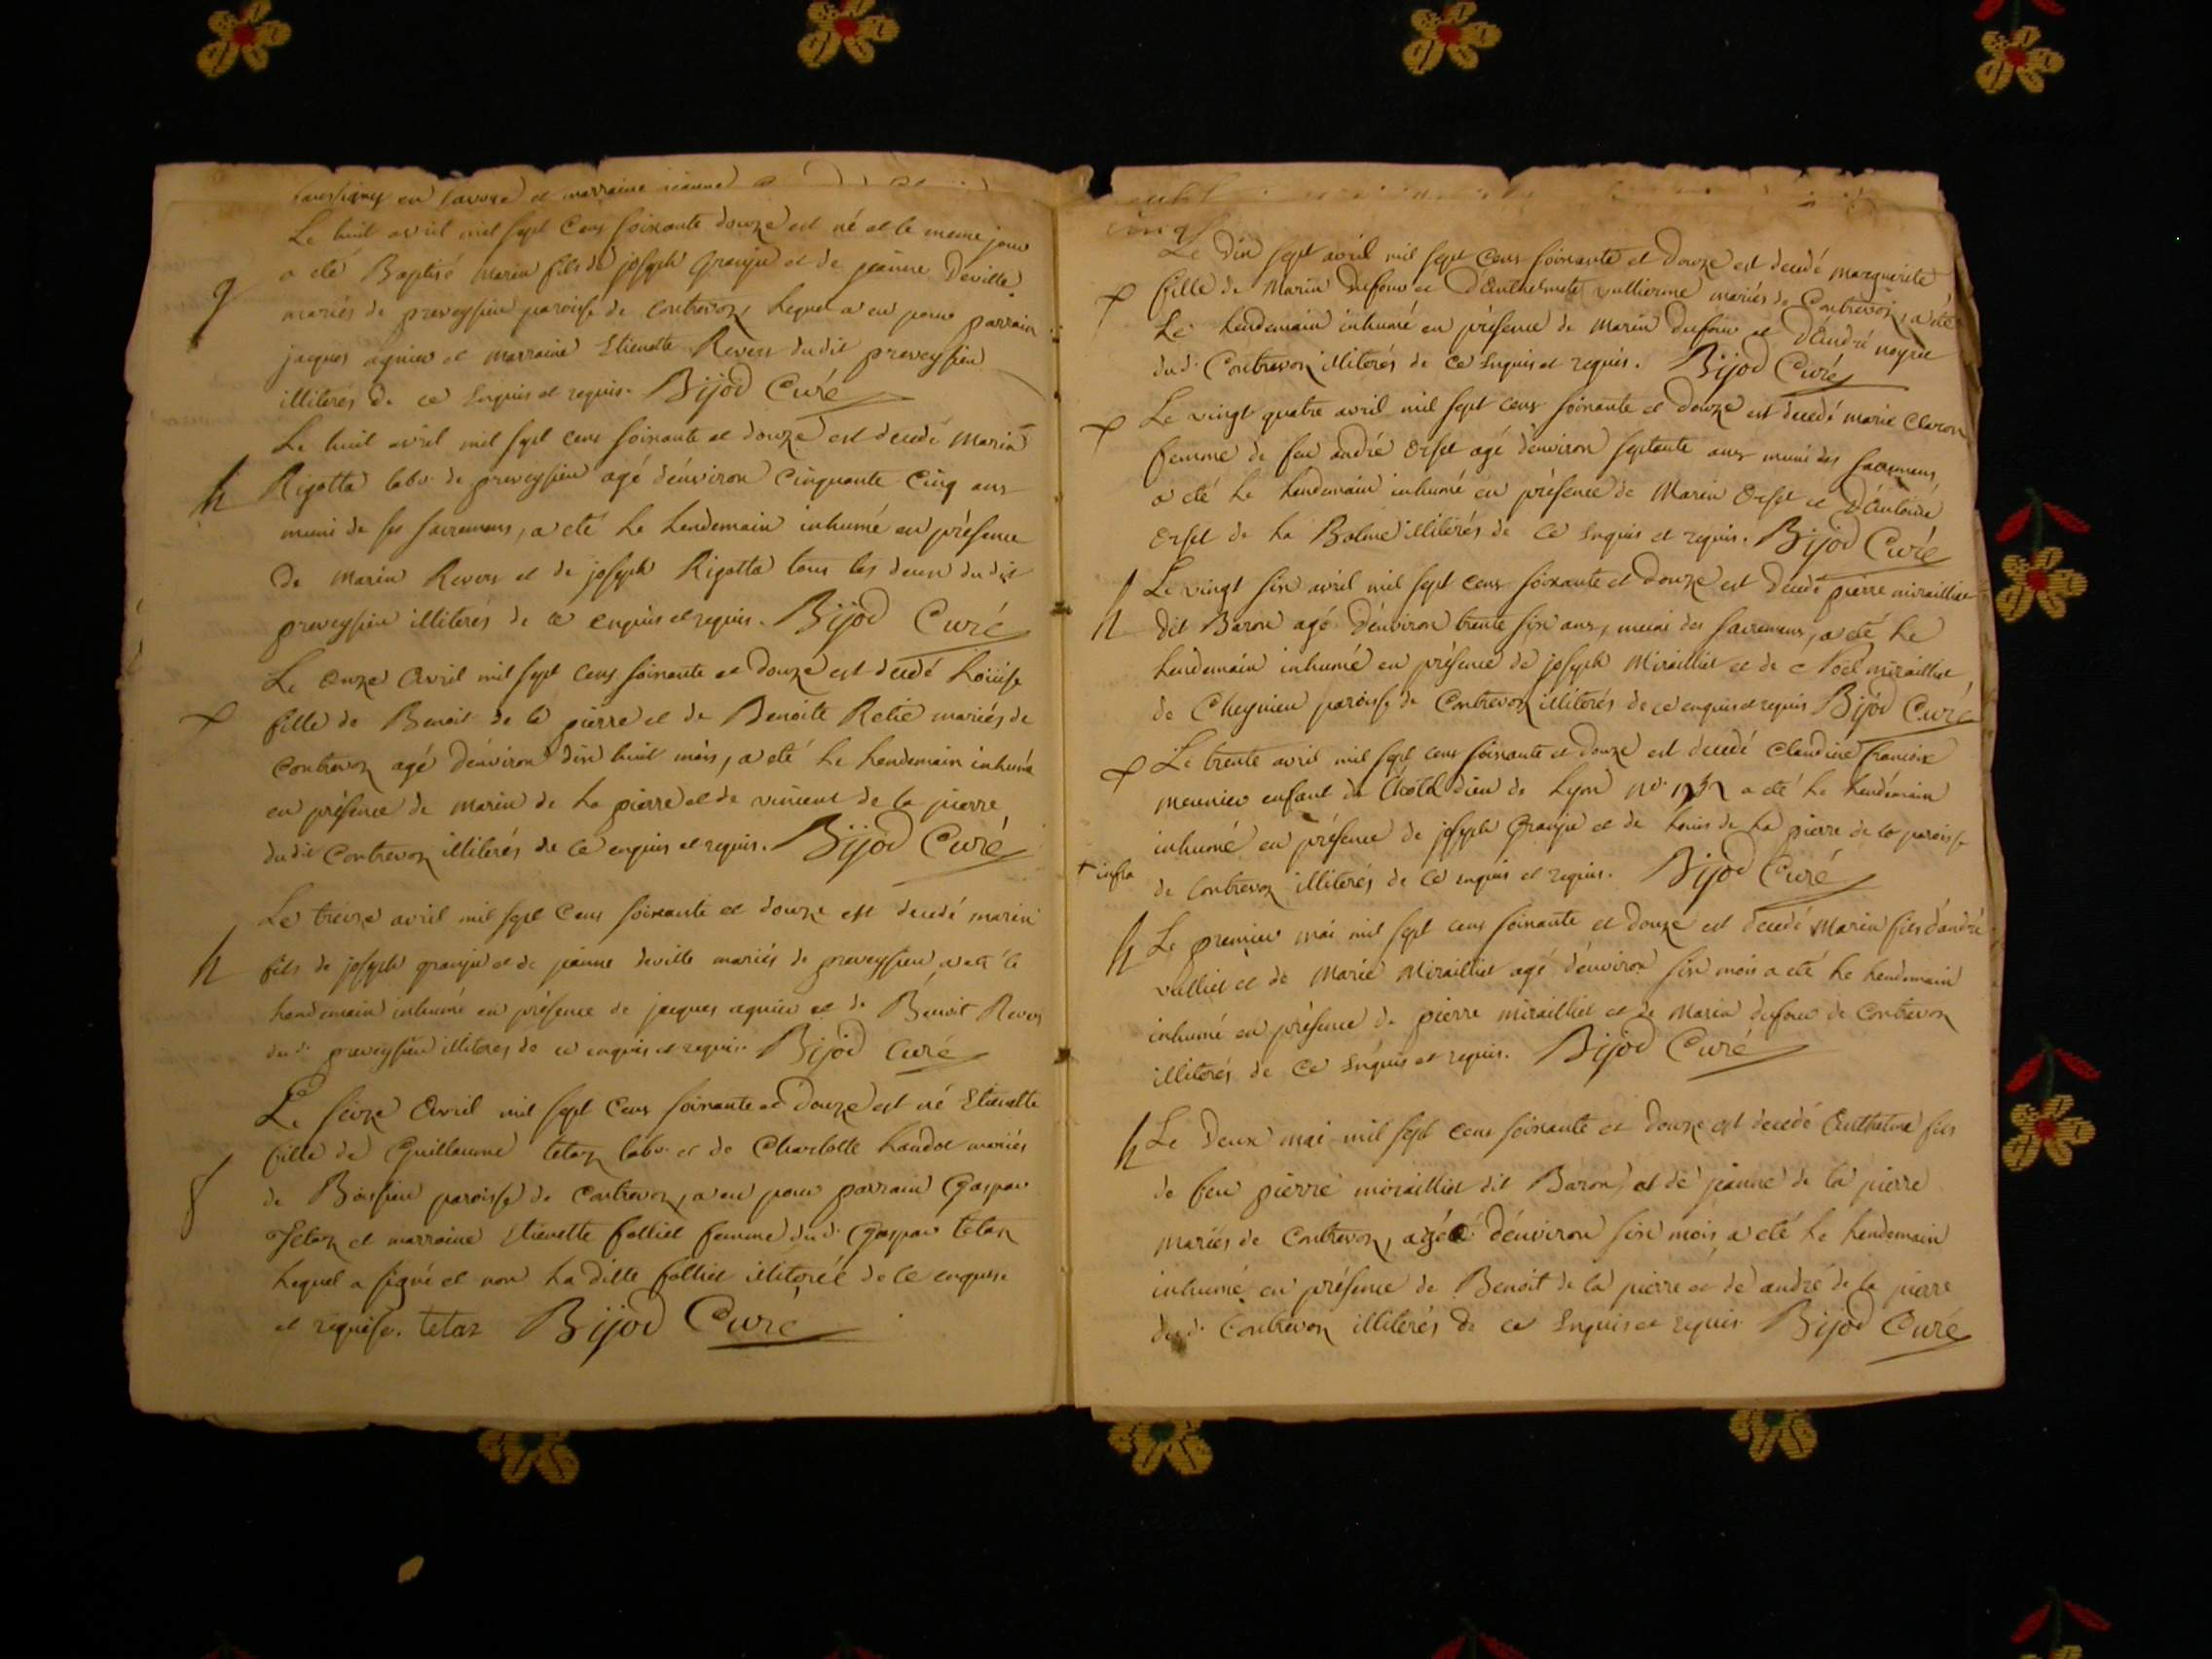 en savoye et marraine jeanne
Le huit avril mil sept cens soixante douze est né et le meme jour
a eté Baptisé marin fils de joseph Granju et de jeanne Deville
mariés de preveyssieu paroisse de contrevoz, Lequel a eu pour parrain
jacques agnier et marraine Etienette Revers dudit preveyssieu
illiterés de ce Enquis et requis. Bijod Curé
Le huit avril mil sept cens soixante et douze est decedé Marin
h Rigotta labr. de preveyssieu agé d'environ Cinquante Cinq ans
muni de ses sacremens, a eté Le Lendemain inhumé en présence
de Marin Revers et de joseph Rigotta tous les deux dudit
preveyssieu illiterés de ce enquis et requis. Bijod Curé
Le onze Avril mil sept cens soixante et douze est decedé Loüise
fille de Benoit de la pierre et de Benoite Retie mariés de
Contrevoz agé d'environ dix huit mois, a eté Le Lendemain inhumé
en présence de Marin de La pierre et de vincent de la pierre
dudit Contrevoz illiterés de ce enquis et requis. Bijod Curé
Le treize avril mil sept cens soixante et douze est decedé marin
h fils de joseph granju et de jeanne deville mariés de preveyssieu a eté le
Lendemain inhumé en présence de jacques agnier et de Benoit Revers
dud. preveyssieu illiteres de ce enquis et requis. Bijod Curé
Le seize Avril mil sept cens soixante et douze est né Etienette
fille de Guillaume tetaz labr. et de Charlotte Landoz mariés
de Boissieu paroisse de Contrevoz, a eu pour parrain Gaspar
Tetaz et marraine Etienette folliet femme dud. Gaspar tetaz
Lequel a signé et non La ditte folliet illiterée de ce enquise
et requise. tetaz Bijod Curé
Le Dix sept avril mil sept cens soixante et douze est decedé marguerite
fille de Marin dufour et d'Anthelmete vullierme mariés de Contrevoz, a eté
Le Lendemain inhumé en présence de marin dufour et d'André
dud. Contrevoz illiterés de ce Enquis et requis. Bijod Curé
Le vingt quatre avril mil sept cens soixante et douze est decedé marie Claron
femme de feu andré Orset agé d'environ septante ans muni des sacremens,
a eté Le Lendemain inhumé en présence de Marin Orset et d'Antoine
Orset de La Balme illiterés de ce Enquis et requis. Bijod Curé
Le vingt six avril mil sept cens soixante et douze est decedé pierre mirailliet
h dit Baron agé d'environ trente six ans, muni des sacremens, a eté Le
Lendemain inhumé en présence de joseph Mirailliet et de Noel mirailliet
de Cheynieu paroisse de Contrevoz illiterés de ce enquis et requis Bijod Curé
Le trente avril mil sept cens soixante et douze est decedé Claudine francoise
meunier enfant de L'hotel dieu de Lyon no. a eté Le Lendemain
inhumé en présence de joseph Granju et de Louis de La pierre de la paroisse
+ infra de Contrevoz illiterés de ce enquis et requis. Bijod Curé
h Le premier mai mil sept cens soixante et douze est decedé Marin fils d'andré
vulliet et de Marie Mirailliet agé d'environ six mois a eté Le Lendemain
inhumé en présence de pierre mirailliet et de Marin dufour de Contrevoz
illiterés de ce Enquis et requis. Bijod Curé
h Le Deux mai mil sept cens soixante et douze est decedé Anthelme fils
de feu pierre mirailliet dit Baron, et de jeanne de la pierre
mariés de Contrevoz, agé d'environ six mois a eté Le Lendemain
inhumé en présence de Benoit de la pierre et de andré de la pierre
dud. Contrevoz illiterés de ce Enquis et requis Bijod Curé